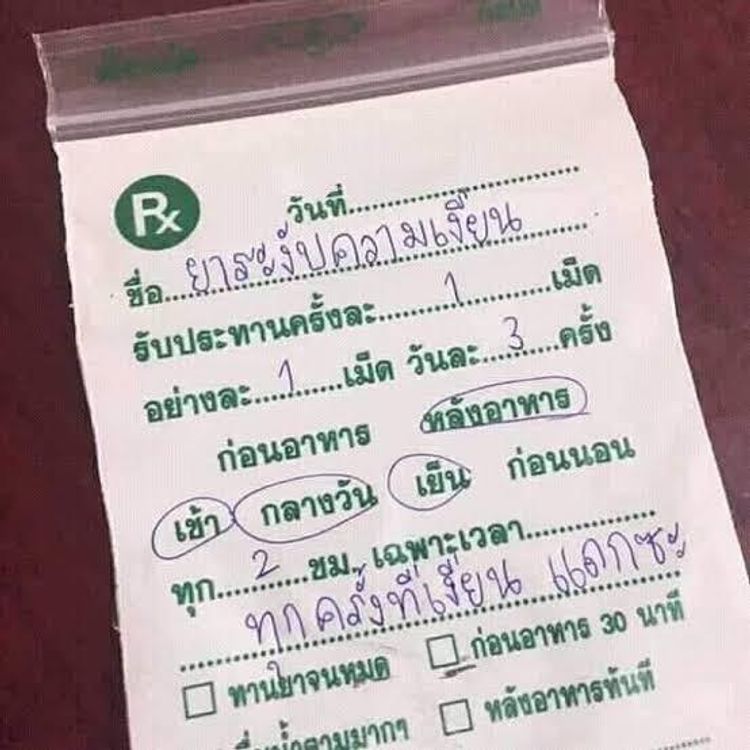 Rx
วันที่
ชื่อ ยาระงับความเงี่ยน
รับประทานครั้งละ 1 เม็ด
อย่างละ 1 เม็ด วันละ 3 ครั้ง
ก่อนอาหาร หลังอาหาร
เช้า กลางวัน เย็น ก่อนนอน
ทุก 2 ชม. เฉพาะเวลา
ทุกครั้งที่เงี่ยน แดกซะ
ทานยาจนหมด ก่อนอาหาร 30 นาที
ดื่มน้ำตามมากๆ หลังอาหารทันที